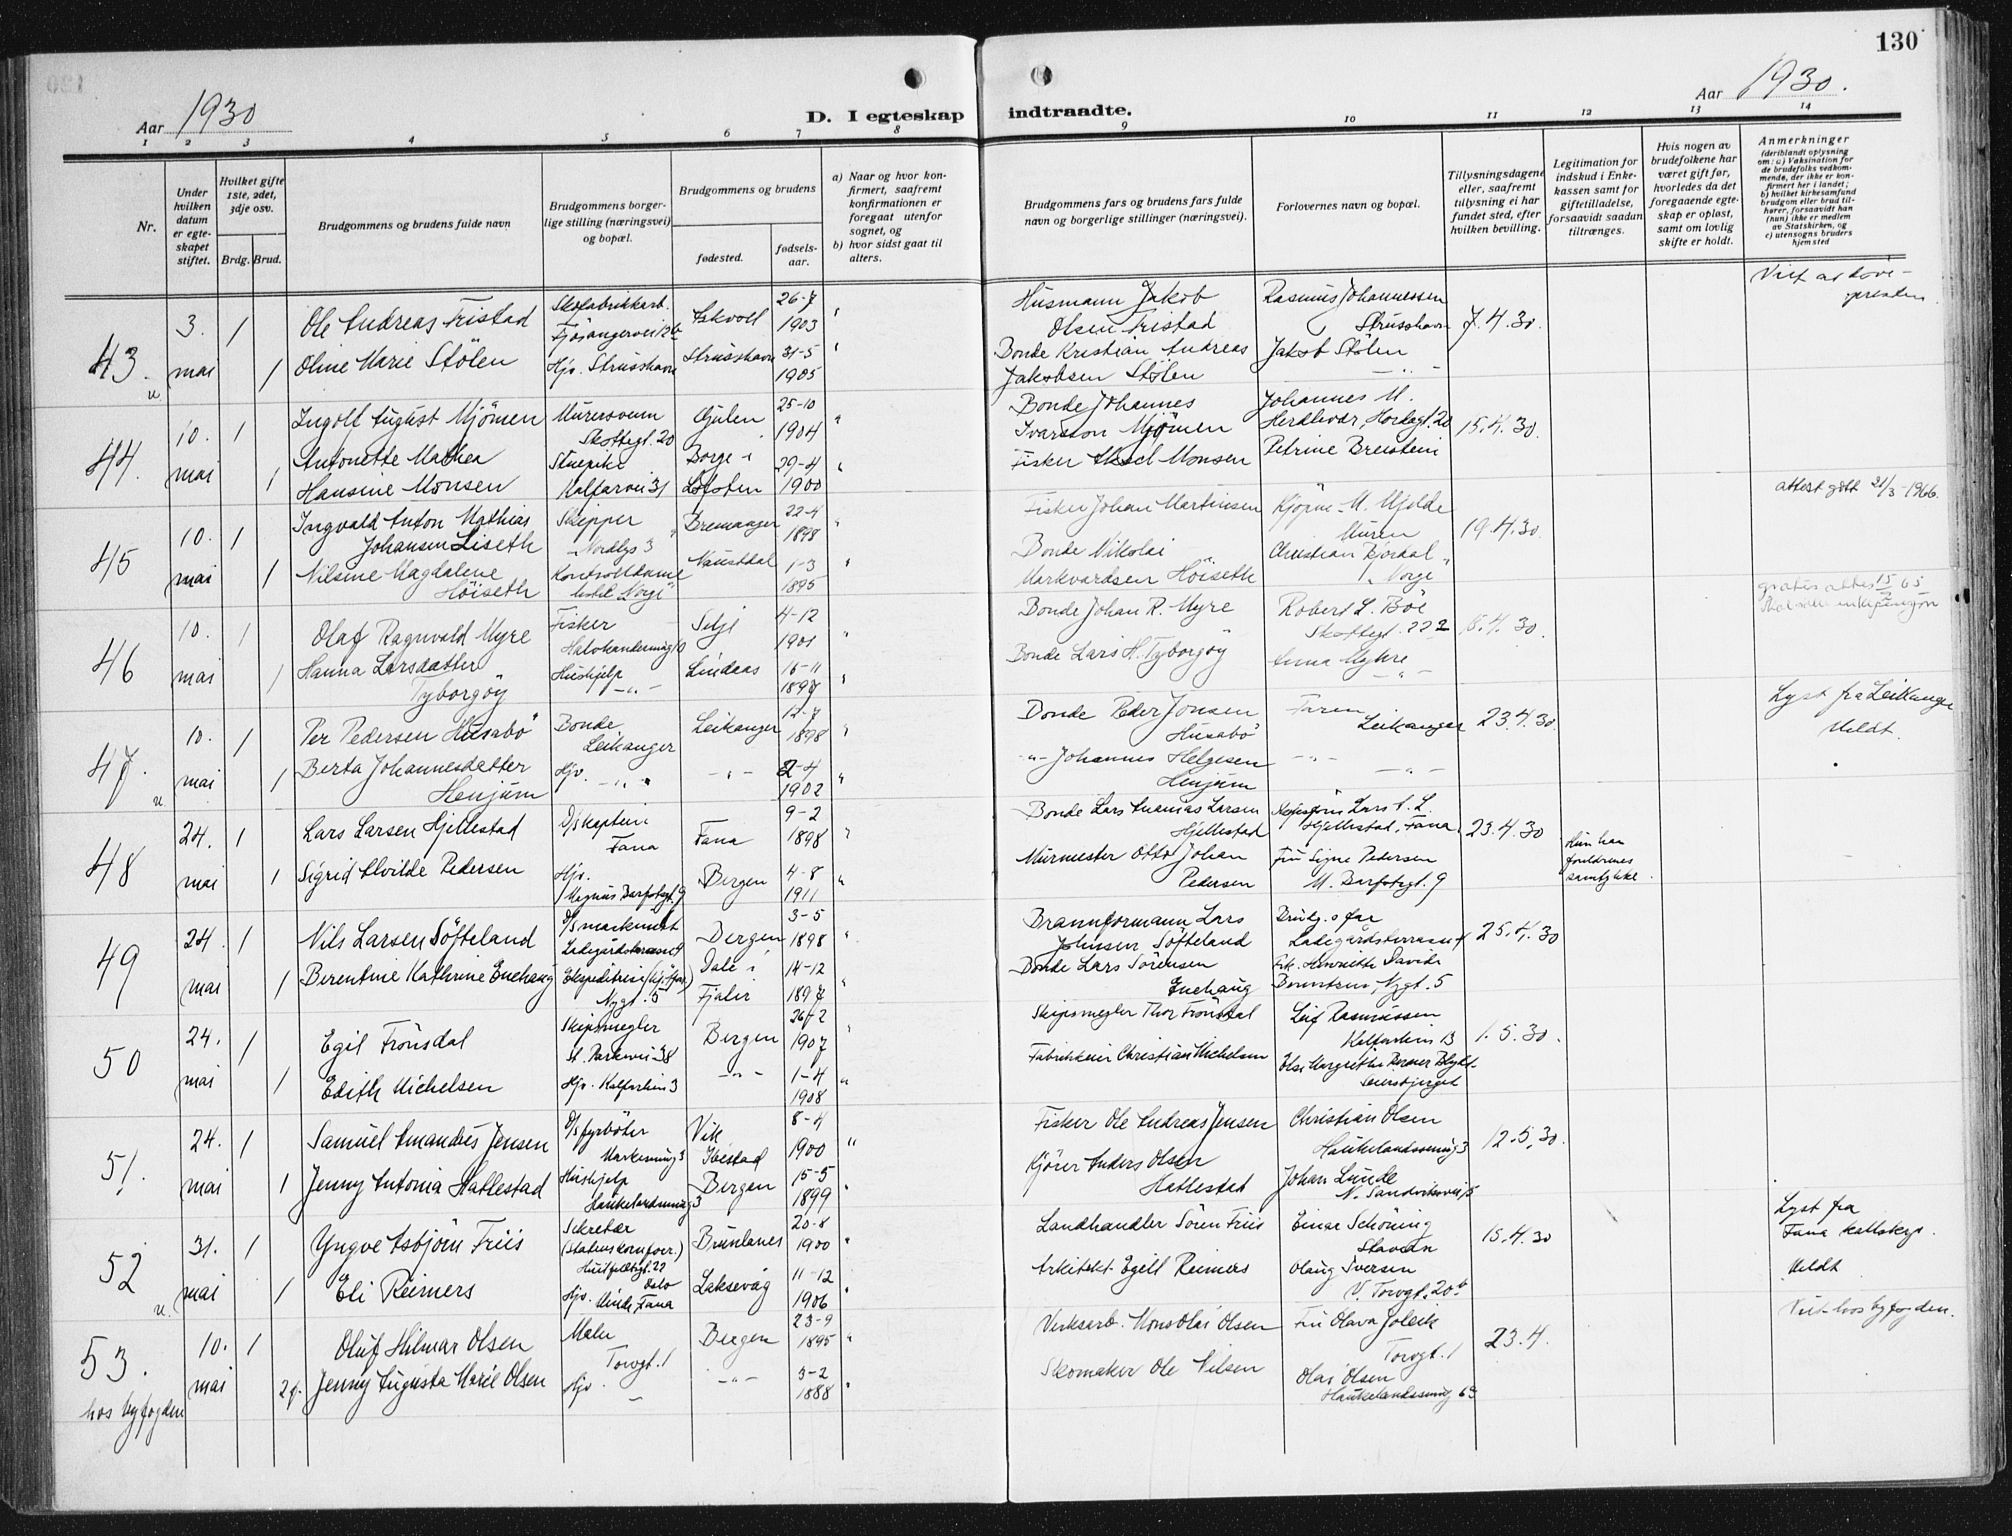 130
Aar 1930
D. I egteskap indtraadte.
Aar 1930.
1 2 3 4 5 6 7 8 9 10 11 12 13 14
Nr.
Under hvilken datum er egteskapet stiftet.
Hvilket gifte 1ste, 2det, 3dje osv.
Brdg. Brud.
Brudgommens og brudens fulde navn
Brudgommens borgerlige stilling (næringsvei) og bopæl.
Brudgommens og brudens
fødested.
fødselsaar.
a) Naar og hvor konfirmert, saafremt konfirmationen er foregaat utenfor sognet, og
b) hvor sidst gaat til alters.
Brudgommens fars og brudens fars fulde navn og borgerlige stillinger (næringsvei).
Forlovernes navn og bopæl.
Tillysningsdagene eller, saafremt tillysning ei har fundet sted, efter hvilken bevilling.
Legitimation for indskud i Enkekassen samt for giftetilladelse, forsaavidt saadan tiltrænges.
Hvis nogen av brudefolkene har været gift før, hvorledes da det foregaaende egteskap er opløst, samt om lovlig skifte er holdt.
Anmerkninger
(deriblandt oplysning om: a) Vaksination for de brudefolks vedkommende, der ikke er konfirmert her i landet; b) hvilket kirkesamfund brudgom eller brud tilhører, forsaavidt han (hun) ikke er medlem av Statskirken, og c) utensogns bruders hjemsted
43. u
3. mai 1 Ole Andreas Tristad Skofabrikkarb. Fjøsangervei 126 Askvoll 26-7 1903 " Husmann Jakob Olsen Tristad Rasmus Johannessen Strusshavn 7.4.30.
1 Oline Marie Stölen Hjv. Strusshavn Strusshavn 31-5 1905 " Bonde Kristian Andreas Jakobsen Stölen Jakob Stölen -"-
44.
10. mai 1 Ingolf August Mjömen Murersvenn Skottegt. 20 Gulen 25-10 1904 " Bonde Johannes Ivarsson Mjömen Johannes M. Herdlevær, Hordagt. 20 15.4.30.
1 Antonette Mathea Hansine Monsen Stuepike Kalfarvei 31 Borge i Lofoten 29-4 1900 " Fisker Aksel Monsen Petrine Breistein
45
10. mai 1 Ingvald Anton Mathias Johansen Liseth Skipper "Nordlys 3" Bremanger 22-4 1898 " Fisker Johan Martinsen Kjöpm. M. Mjelde Muren 19.4.30. attest gått 21/3-1966.
1 Nilsine Magdalene Höiseth Kontroldame hotel "Norge" Naustdal 1-3 1895 " Bonde Nikolai Markvardsen Höiseth Christian "Norge"
46
10. mai 1 Olaf Ragnvald Myre Fisker Selje 4-12 1901 " Bonde Johan R. Myre Robert L. Böe Skottegt. 22 15.4.30. gratis attest 15/2 65
1 Hanna Larsdatter Tyborgöy Hushjelp -"- Lindaas 16-11 1897 " Bonde Lars H. Tyborgöy Anna Myhre -"-
47. u
10. mai 1 Per Pedersen Husabö Bonde Leikanger Leikanger 12-7 1898 " Bonde Peder Jonsen Husabö Faren Leikanger 23.4.30. Lyst fra Leikanger Meldt.
1 Berta Johannesdatter Henjum Hjv. -"- -"- 2-4 1902 " -"- Johannes Helgesen Henjum -"- -"-
48
24. mai 1 Lars Larsen Hjellestad D/s kaptein Fana Fana 9-2 1898 " Bonde Lars Ananias Larsen Hjellestad Lars A. L. Hjellestad, Fana. 23.4.30 Hun har foreldrenes samtykke.
1 Sigrid Alvilde Pedersen Hjv. Magnus Barfotsgt. 9 Bergen 4-8 1911 " Murmester Otto Johan Pedersen Fru Signe Pedersen M. Barfotsgt. 9
49
24. mai 1 Nils Larsen Söfteland D/s maskinist Ladegårdsterrasse 4 Bergen 3-5 1898 " Brannformann Lars Johnsen Söfteland Brudg.s far Ladegårdsterrasse 4 25.4.30
1 Berentine Kathrine Enehaug Ekspeditrise Nygt. 5 Dale i Fjaler 14-12 1897 " Bonde Lars Sörensen Enehaug Frk. Henriette Davida Nygt. 5
50
24. mai 1 Egil Frönsdal Skipsmegler St. Parkvei 38 Bergen 26-2 1907 " Skipsmegler Thor Frönsdal Leif Rasmussen Kalfarlien 13 1.5.30.
1 Edith Michelsen Hjv. Kalfarlien 3 -"- 1-4 1908 " Fabrikkeier Christian Michelsen Else Margrethe
51.
24. mai 1 Samuel Amandus Jensen D/s fyrböter Markeveing 3 Vik Ibestad 8-4 1900 " Fisker Ole Andreas Jensen Christian Olsen Haukelandssving 3 12.5.30.
1 Jenny Antonia Hatlestad Hushjelp Haukelandssving 3 Bergen 15-5 1899 " Kjörer Anders Olsen Hatlestad Johan Lunde N. Sandviksvei 15
52 u.
31. mai 1 Yngve Asbjörn Friis Sekretær (Statens kornforr.) Huitfeldtsgt. 22 Oslo Brunlanes 20-8 1900 " Landhandler Sören Friis Einar Schöning Stavern 15.4.30 Lyst fra Fana kallskap. Meldt
1 Eli Reimers Hjv. Minde, Fana Laksevåg 11-12 1906 " Arkitekt Egill Reimers Olaug Iversen V. Torvgt. 20b
53. hos byfogden
10. mai 1 Oluf Hilmar Olsen Maler Torvgt. 1 Bergen 23-9 1895 " Verksarb. Mons Olai Olsen Fru Olava Joleik Torvgt. 1 23.4. Viet hos byfogden.
2g. Jenny Augusta Marie Olsen Hjv. - -"- 3-2 1888 " Skomaker Ole Nilsen Olai Olsen Haukelandssving